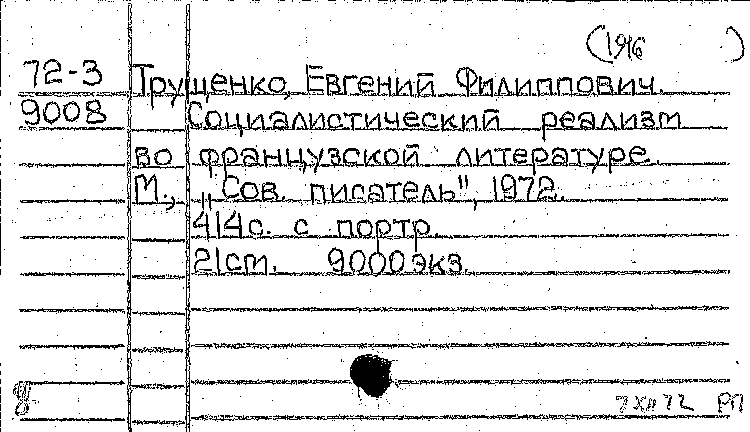 (196 )
72-3 Трущенко, Евгений Филиппович.
9008 Социалистический реализм
во французской литературе.
М., „Сов. писатель", 1972.
414с. с портр.
21cm. 9000экз.
7 XII 72 РП